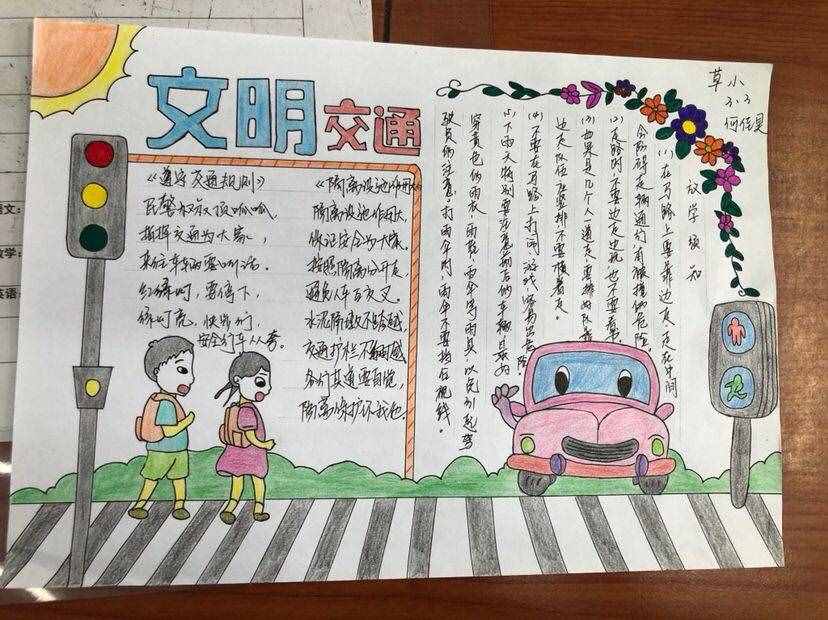 文明交通
草小
3.3
《遵守交通规则》
民警叔叔顶呱呱,
指挥交通为大家,
来往车车要听话。
红绿灯,要停下,
绿灯亮,快步行,
安全行车人人夸。
《隔离设施作用大》
隔离设施作用大,
保证安全为大家。
按照隔离分开走,
避免人车互交叉。
水泥隔墩不跨越,
交通护栏不翻越
各行其道要自觉,
隔离保护你我他。
放学须知
(1) 在马路上要靠边走,走在中间
会防碍走辆通行有被撞的危险
(2) 走路时不要边走边玩也不要看书
(3) 如果是几个人一道走,要排的队靠
边走队伍应竖排不要横着走。
(4) 不要在马路上打闹游戏 容易出危险
(5) 下雨天特别要注意前后的车辆最好
穿黄色的雨衣,雨靴,雨伞等雨具,以免引起驾
驶员的注意。打雨伞时,雨伞不要挡台视线。
语文:
数学:
英语: